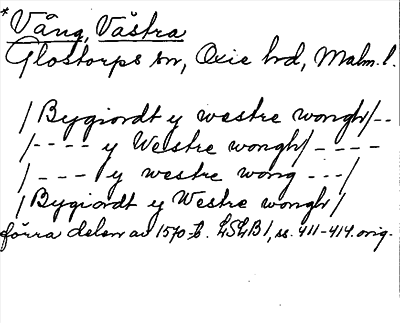 * Vång, Västra
Glostorps sn, Oxie hd, Malm. l.
/ Bygiordt y westre wongh/--
/---- y Westre wongh/----
/--- y westre wong ---/
/ Bygiordt y Westre wongh/
förra delen av 1570-t. LSLB 1, ss. 411-414. orig.